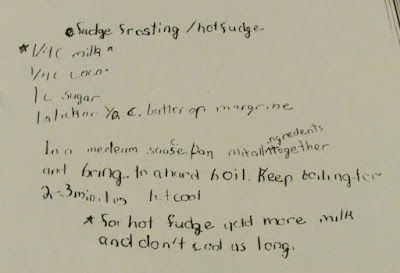 Fudge frosting / hot fudge
* 1/4 C milk *
1/4 C coco
1 c sugar
1 stick or 1/2 c. butter or margrine
In a medeum sause pan mix all ingredents together
and bring to a hard boil. Keep boiling for
2-3 min. let cool
* For hot fudge add more milk
and don't cool as long.